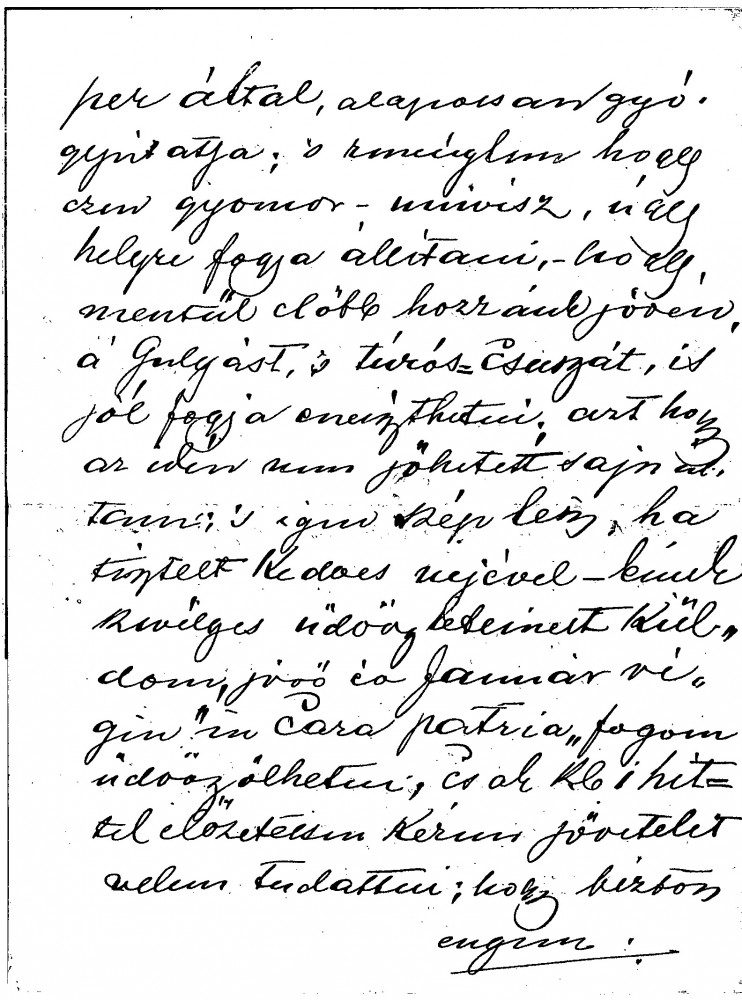 per által, alaposan gyó-
gyittatja; 's reménylem hogy
ezen gyomor-művész, úgy
helyre fogja állítani,- hogy,
mentül előbb hozzánk jövén,
á Gulyást, 's túrós=Csuszát, is
jól fogja emészthetni; azt hogy
az idén nem jöhetett sajnál-
tam; 's igen szép lesz, ha
tisztelt Kedves nejével – kinek
szivélyes üdvözleteimet Kül„
dom, jövő év Január vé„
gén "in Cara patria„ fogom
üdvözölhetni, Csak Kb i hét=
tel előzetesen Kérem jövetelét
velem tudattni; hogy bizton
engem :